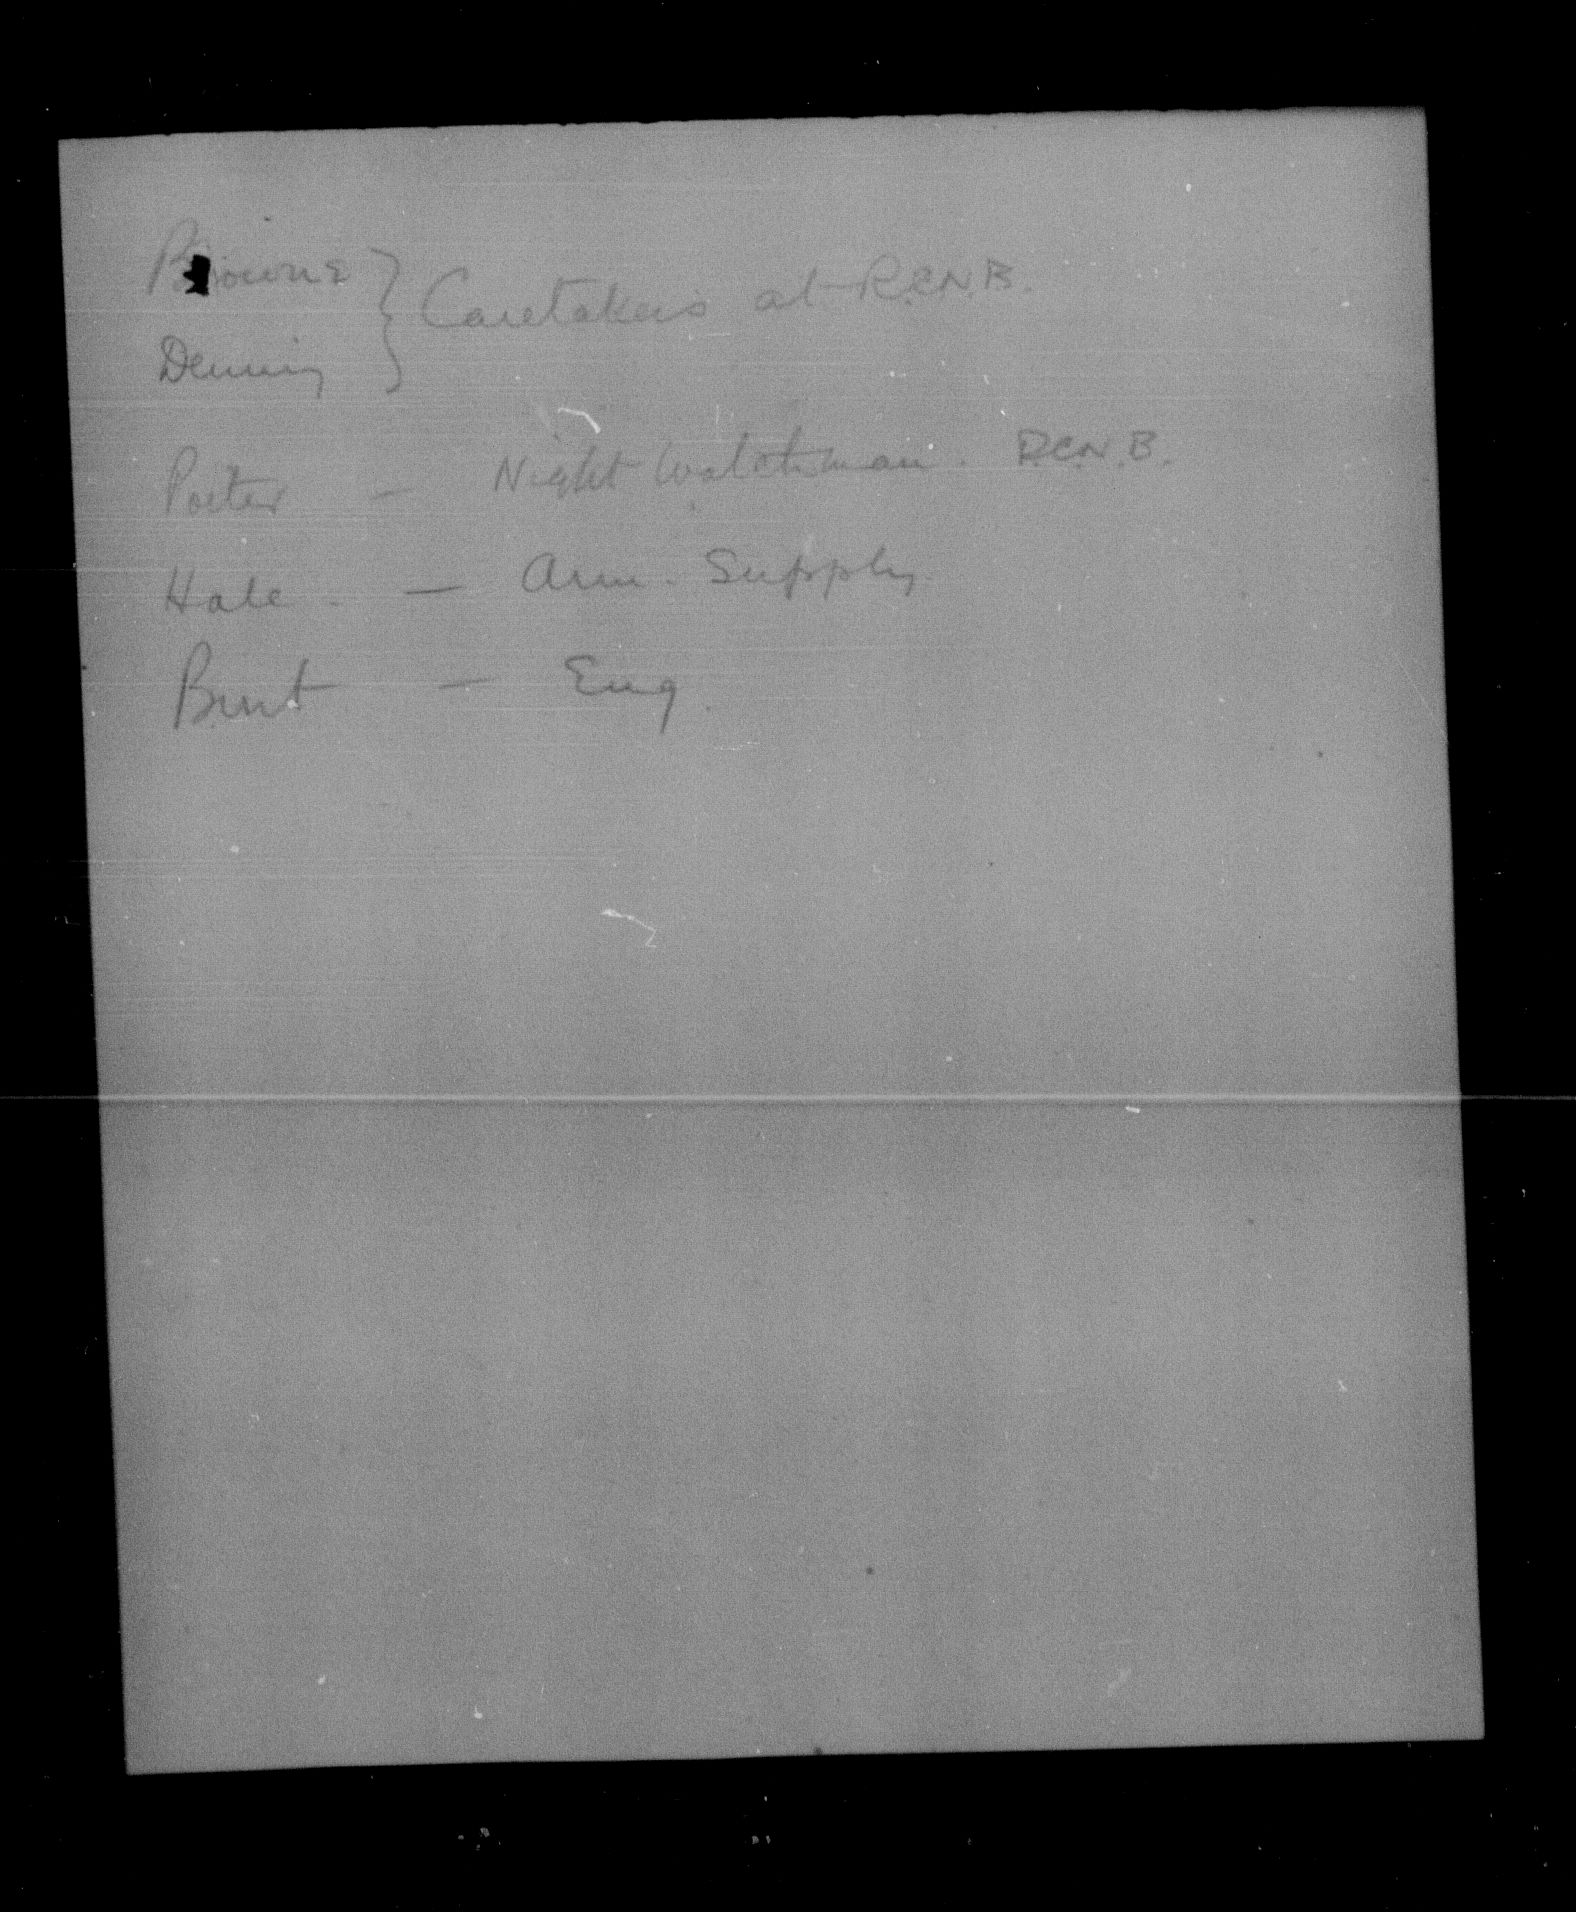 Browne } Caretakers at R.C.N.B.
Denning
Porter - Night Watchman. R.C.N.B.
Hale. - Arm. Supply.
Burt - Eng.